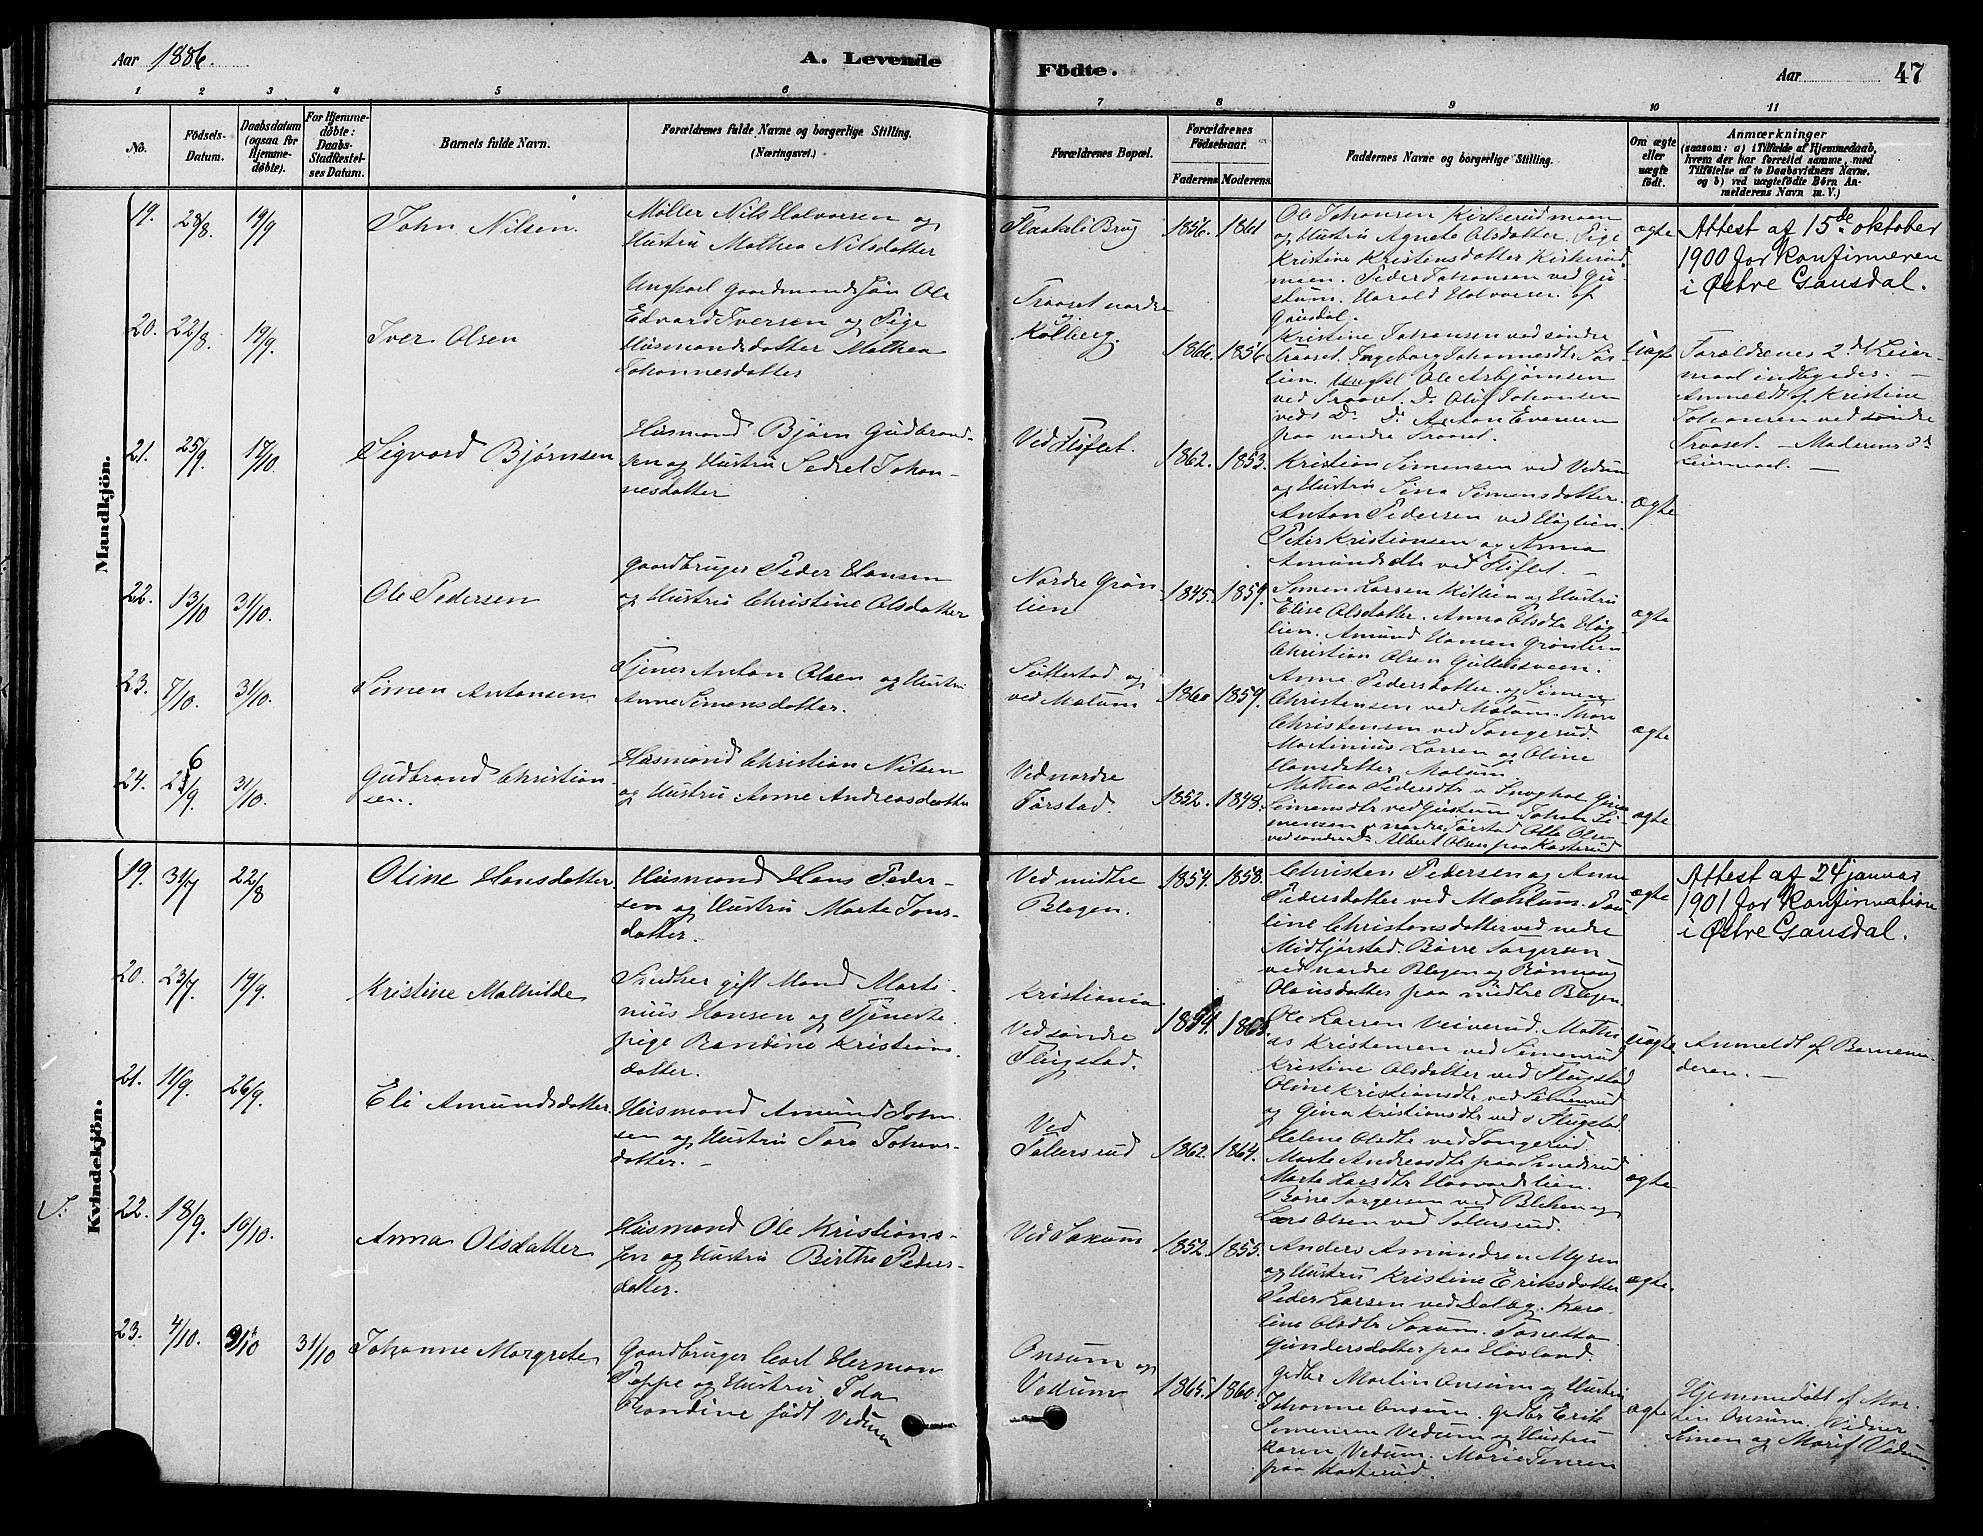 Aar 1886.
A. Levende
Fødte.
Aar
47
1 2 3 4 5 6 7 8 9 10 11
No.
Fødsels-
Datum.
Daabsdatum
(ogsaa for
Hjemme-
døbte).
For Hjemme-
døbte:
Daabs-
Stadfæstel-
ses Datum.
Barnets fulde Navn.
Forældrenes fulde Navne og borgerlige Stilling.
(Næringsvei.)
Forældrenes Bopæl.
Forældrenes
Fødselsaar.
Faderens
Moderens.
Faddernes Navne og borgerlige Stilling.
Om ægte
eller
uægte
født.
Anmærkninger
(saasom: a) i Tilfælde af Hjemmedaab,
hvem der har forrettet samme, med
Tilføielse af to Daabsvidners Navne.
og b) ved uægtefødte Børn An-
melderens Navn m. V.)
Mandkjön.
19.
28/8.
19/9
John Nilsen.
Møller Nils Halvorsen og
Hustru Mathea Nilsdatter
1856.
1861
Ole Johansen Kirkerudmoen
og Hustru Agnete Olsdatter. Pige
Kristine Kristensdatter Kirkerud
moen. Peder Johansen ved Gu-
stum. Harald Halvorsen af
Gausdal.
ægte
Attest af 15de oktober
1900 for Konfirmeren
i Østre Gausdal.
20.
22/8.
19/9.
Iver Olsen
Ungkarl Gaardmandssøn Ole
Edvard Iversen og Pige
Husmandsdatter Mathea
Johannesdatter
Traaset nordre
og
Kolberg.
1866.
1856
Kristine Johansen ved søndre
Traaset. Ingeborg Johannesdtr Sør-
lien. Ungkl Ole Asbjørnsen
ved Traaset. D. Oluf Johansen
veds D. D. Anton Evensen
paa nordre Traaset.
Uægte
Forældrenes 2d Leier-
maal indbyrdes. –
Anmeldt af Kristine
Johansen ved søndre
Traaset. – Moderens 3d
Leiermaal. –
21.
25/9.
17/10.
Sigvard Bjørnsen
Husmand Bjørn Gudbrand-
sen og Hustru Sedsel Johan-
nesdatter
Ved Fliflet.
1862.
1853.
Kristian Simensen ved Vedum
og Hustru Sina Simensdatter.
Anton Pedersen ved Høglien.
Peter Kristiansen og Anna
Amundsdtr ved Fliflet. –
ægte
22.
13/10
31/10.
Ole Pedersen
Gaardbruger Peder Hansen
og Hustru Christine Olsdatter
Nordre Grøn
lien
1845.
1859.
Simen Larsen Killien og Hustru
Elise Olsdatter. Anna Olsdtr Høg-
lien. Amund Hansen Grønlien
Christian Olsen Gullesveen.
ægte
23.
7/10.
31/10.
Simen Antonsen
Tjener Anton Olsen og Hustru
Anne Simensdatter.
Søttestad og
ved Mælum
1860
1859.
Anne Pedersdatter og Simen
Christensen ved Mælum. Thore
Christensen ved Tangerud.
Martinius Larsen og Oline
Hansdatter Mælum.
ægte
24.
26/9
31/10.
Gudbrand Christian
sen.
Husmand Christian Nilsen
og Hustru Anne Andreasdatter
Ved nordre
Jørstad.
1852.
1848.
Mathea Pedersdtr v Gina
Simensdtr ved Gustum. Johan Si-
mensen v nordre Jørstad Ole Olsen
ved søndre Ds. Albert Olsen paa Kasterud
ægte
Kvindekjön.
19.
31/7
22/8
Oline Hansdatter
Husmand Hans Peder-
sen og Hustru Marte Jons-
datter.
Ved midtre
Blegen.
1854.
1858.
Christen Pedersen og Anne
Pedersdatter ved Mæhlum. Pau-
line Christensdatter ved nedre
Midtjørstad. Børre Torgersen
ved nordre Blegen og Rønnaug
Olausdatter paa midtre Blegen.
ægte
Attest af 24 januar
1901 for Konfirmation
i Østre Gausdal.
20.
23/7.
19/9.
Kristine Mathilde
Snedker gift Mand Marti-
nius Hansen og Tjeneste-
pige Randine Kristians-
datter.
Kristiania
Ved søndre
Flugstad.
1854.
1863.
Ole Larsen Veiverud. Mathi
as Kristensen ved Simenrud
Kristine Olsdatter ved Flugstad
Oline Kristiansdtr ved Simenrud
og Gina Kristiansdtr ved s Flugstad
uægte
Anmeldt af Barnemo-
deren. –
21.
11/9.
26/9.
Eli Amundsdatter
Husmand Amund John
sen og Hustru Tora Johans-
datter. –
Ved
Tollersrud
1862.
1864.
Helene Olsdtr ved Tangerud.
Marte Andreasdtr paa Smedsrud
Marte Larsdtr Haavardslien.
Børre Torgersen ved Blehen og
Lars Olsen ved Tollersrud.
ægte
S:
22.
18/9.
10/10.
Anna Olsdatter
Husmand Ole Kristian-
sen og Hustru Birthe Peders-
datter.
Ved Saxum
1852.
1855.
Anders Amundsen Myren
og Hustru Kristine Eriksdatter
Peder Larsen ved Dalby. Karo-
line Olsdtr Saxum. Tonetta
Gundersdatter paa Hovland.
ægte.
23.
4/10.
31/10
Johanne Margrete
Gaardbruger Carl Herman
Poppe og Hustru Ida
Randine født Vedum
Onsum og
Vedum
1865
1860.
Grdbr Martin Onsum og Hustru
Johanne Onsum. Grdbr Erik
Simensen Vedum og Hustru
Karen Vedum. Marie Jensen
paa Kasterud.
ægte
Hjemmedøbt af Mar-
tin Onsum. Vidner
Simen og Marit Vedum.